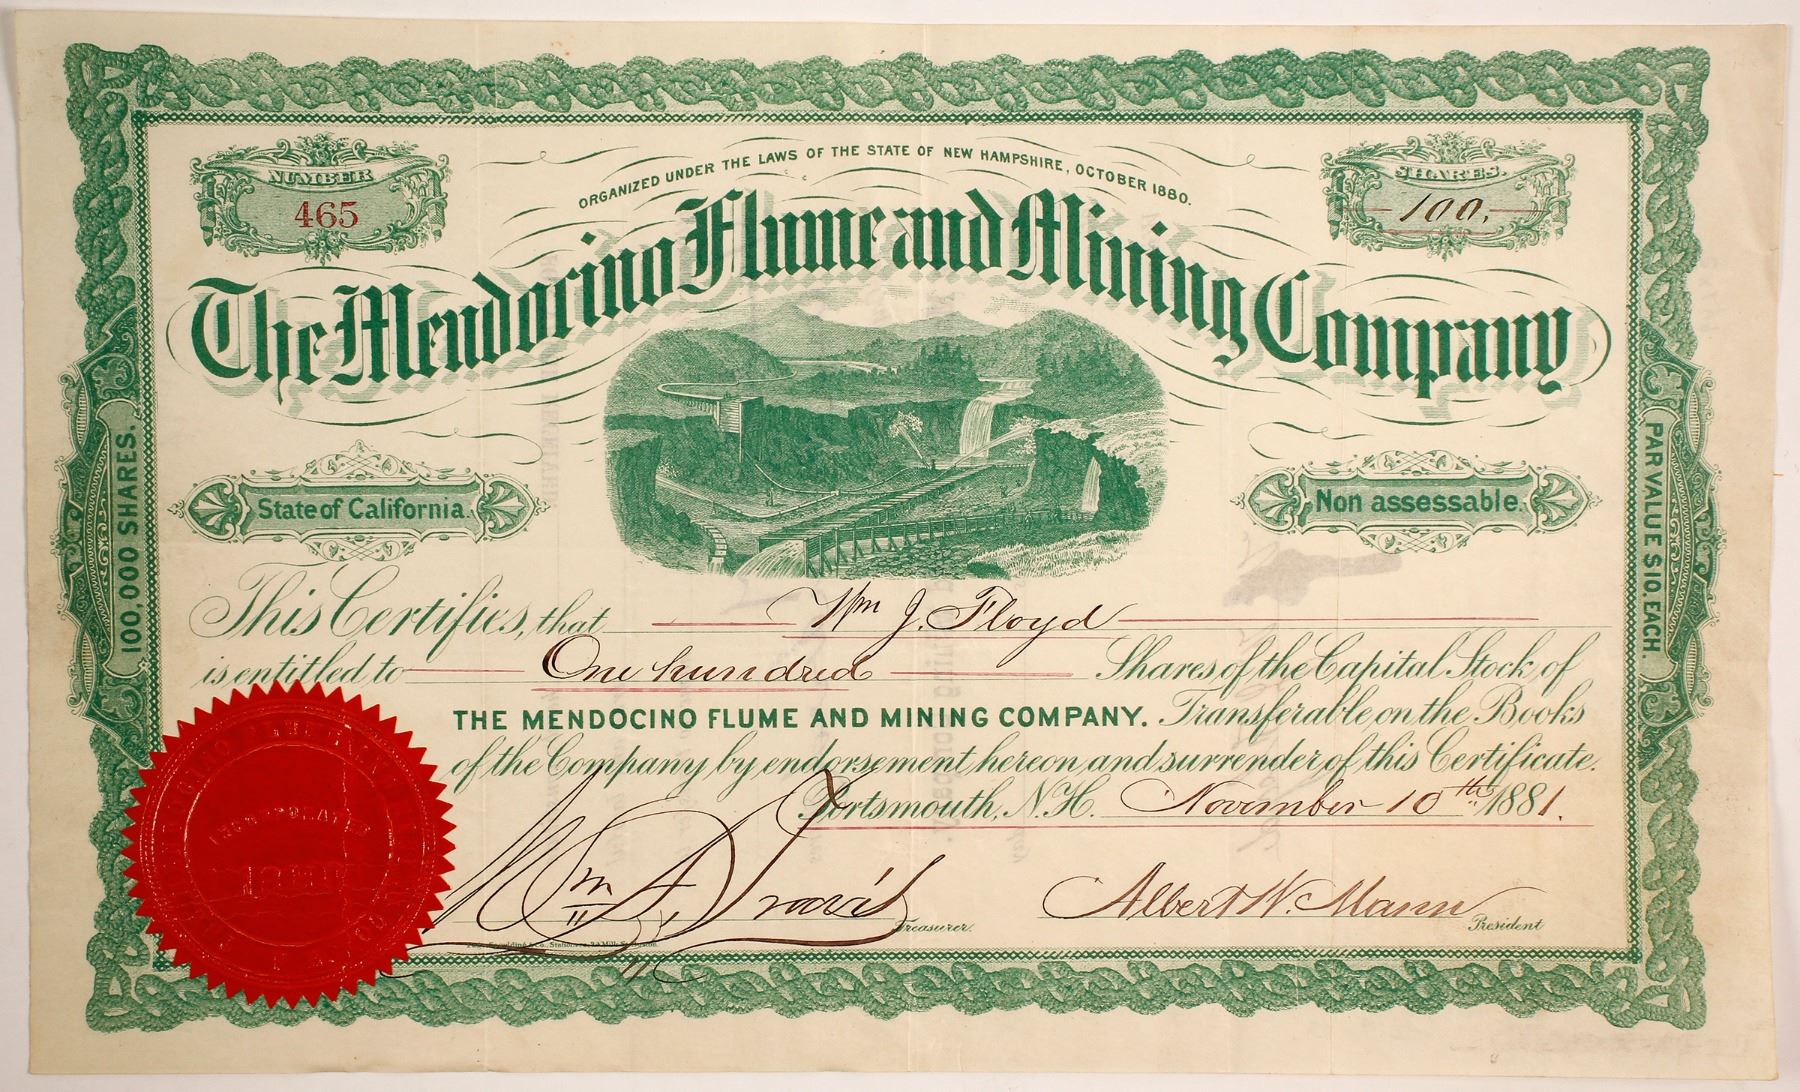 ORGANIZED UNDER THE LAWS OF THE STATE OF NEW HAMPSHIRE, OCTOBER 1880.
NUMBER
465
SHARES.
100.
The Mendocino Flume and Mining Company
State of California.
Non assessable.
100,000 SHARES.
PAR VALUE $10, EACH.
This Certifies, that Wm J. Floyd
is entitled to One hundred Shares of the Capital Stock of
THE MENDOCINO FLUME AND MINING COMPANY. Transferable on the Books
of the Company by endorsement hereon and surrender of this Certificate.
Portsmouth, N.H. November 10th 1881.
Wm A. Travis Treasurer.
Albert W. Mann President